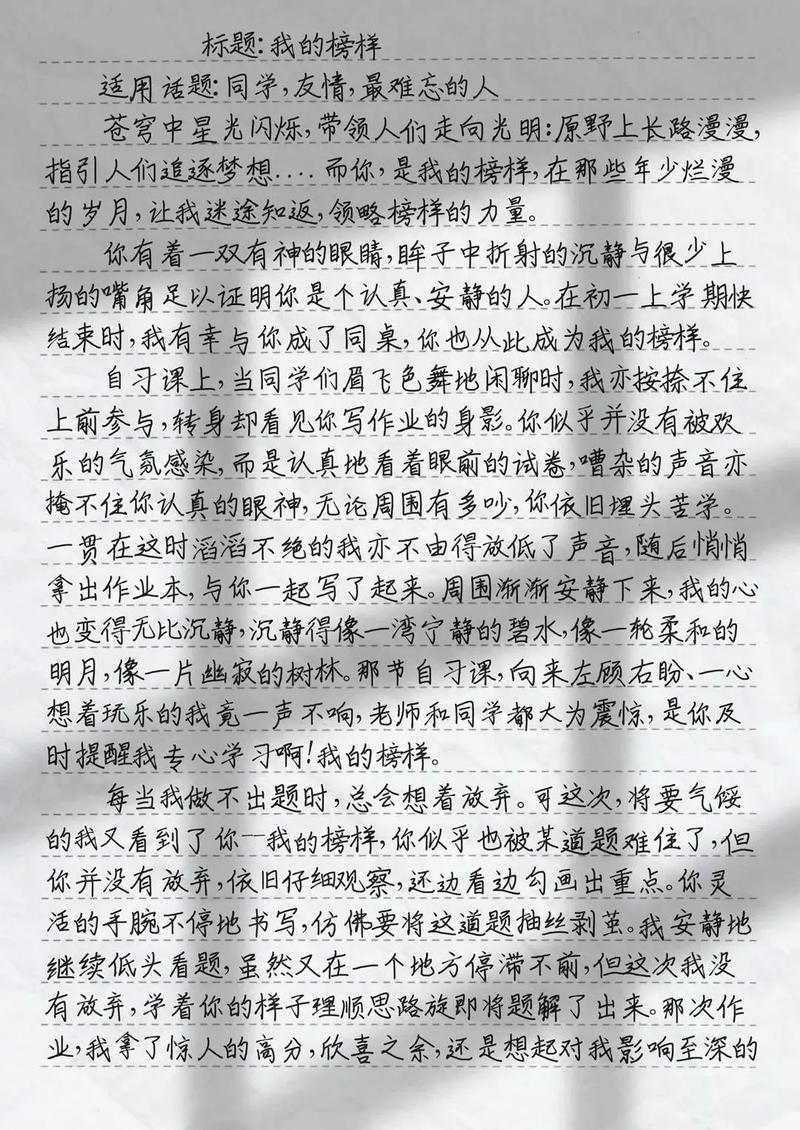 标题:我的榜样
适用话题:同学,友情,最难忘的人
苍穹中星光闪烁,带领人们走向光明:原野上长路漫漫,
指引人们追逐梦想....而你,是我的榜样,在那些年少烂漫
的岁月,让我迷途知返,领略榜样的力量。
你有着一双有神的眼睛,眸子中折射的沉静与很少上
扬的嘴角足以证明你是个认真、安静的人。在初一上学期快
结束时,我有幸与你成了同桌,你也从此成为我的榜样。
自习课上,当同学们眉飞色舞地闲聊时,我亦按捺不住
上前参与,转身却看见你写作业的身影。你似乎并没有被欢
乐的气氛感染,而是认真地看着眼前的试卷,嘈杂的声音亦
掩不住你认真的眼神,无论周围有多吵,你依旧埋头苦学。
一贯在这时滔滔不绝的我亦不由得放低了声音,随后悄悄
拿出作业本,与你一起写了起来。周围渐渐安静下来,我的心
也变得无比沉静,沉静得像一湾宁静的碧水,像一轮柔和的
明月,像一片幽寂的树林。那节自习课,向来左顾右盼、一心
想着玩乐的我竟一声不响,老师和同学都大为震惊,是你及
时提醒我专心学习啊!我的榜样。
每当我做不出题时,总会想着放弃。可这次,将要气馁
的我又看到了你一一我的榜样,你似乎也被某道题难住了,但
你并没有放弃,依旧仔细观察,还边看边勾画出重点。你灵
活的手腕不停地书写,仿佛要将这道题抽丝剥茧。我安静地
继续低头看题,虽然又在一个地方停滞不前,但这次我没
有放弃,学着你的样子理顺思路旋即将题解了出来。那次作
业,我拿了惊人的高分,欣喜之余,还是想起对我影响至深的